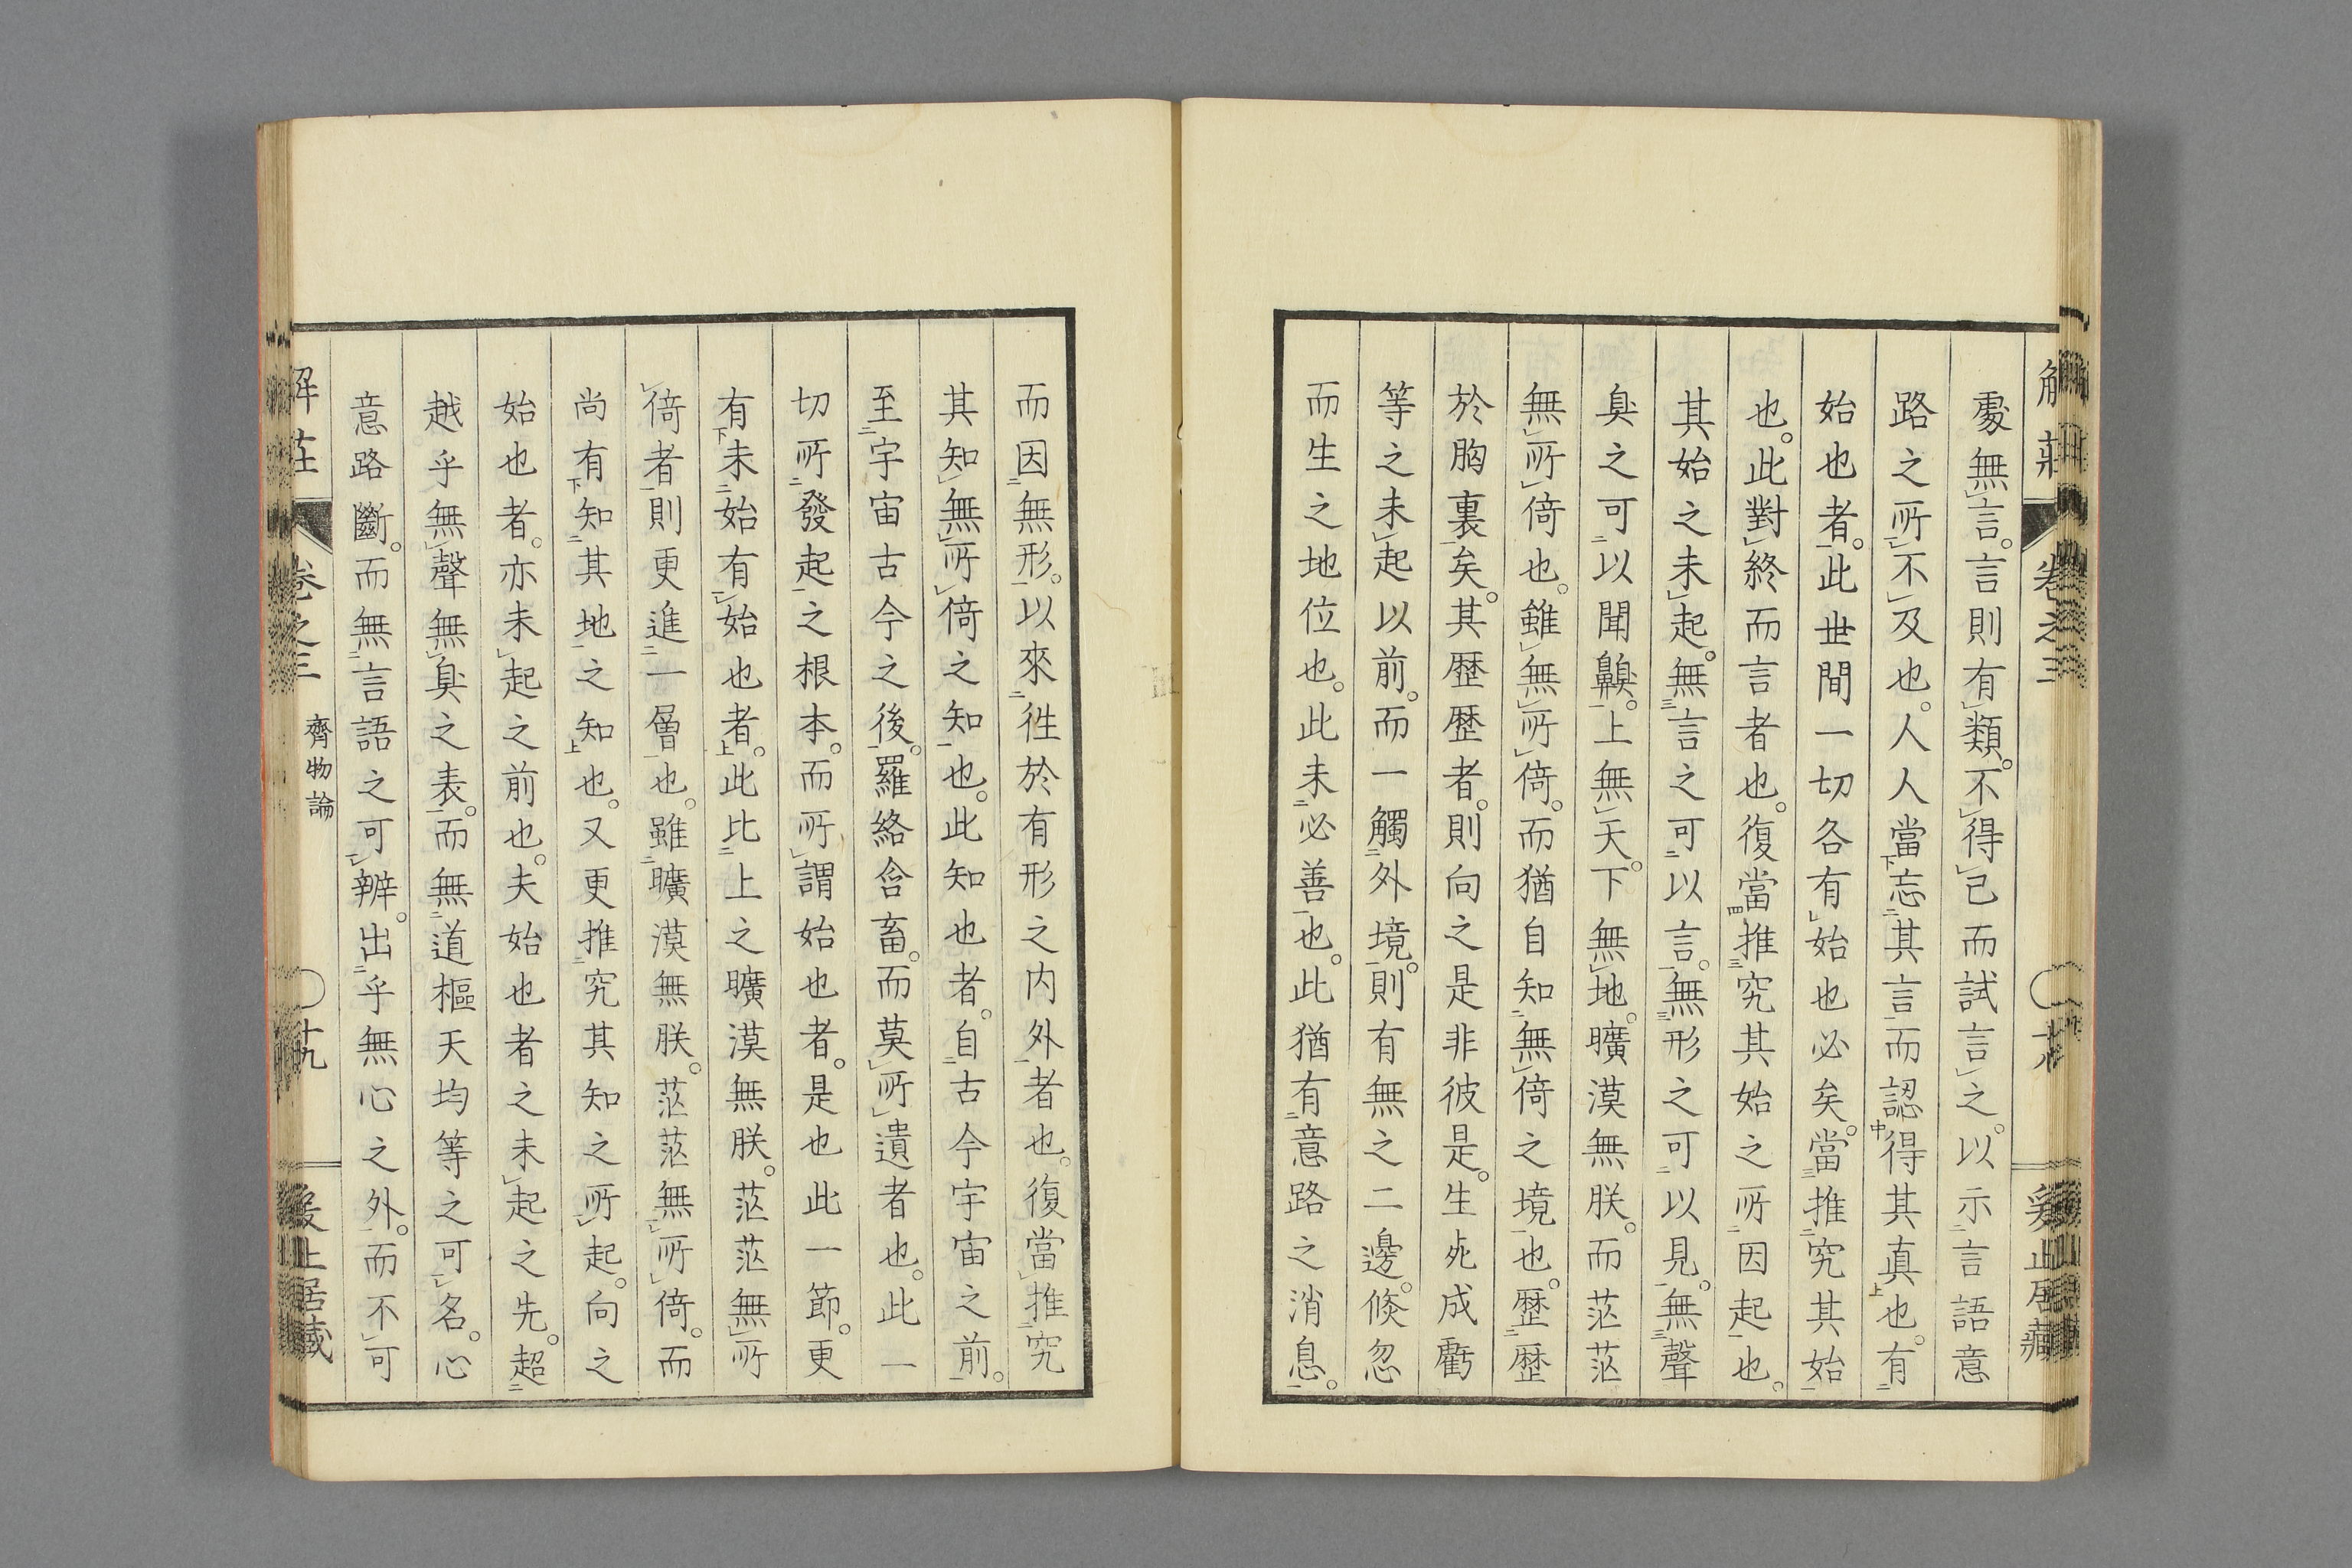 處無言。言則有類。不得已而試言之。以示言語意
路之所不及也。人人當忘其言而認得其真也。有
始也者。此世間一切各有始也必矣。當推究其始
也。此對終而言者也。復當推究其始之所因起也。
其始之未起。無言之可以言。無形之可以見。無聲
臭之可以聞齅。上無天。下無地。曠漠無朕。而茫茫
無所倚也。雖無所倚。而猶自知無倚之境也。歷歷
於胸裏矣。其歷歷者。則向之是非彼是。生死成虧
等之未起以前。而一觸外境。則有無之二邊。倏忽
而生之地位也。此未必善也。此猶有意路之消息。
而因無形。以來徃於有形之内外者也。復當推究
其知無所倚之知也。此知也者。自古今宇宙之前。
至宇宙古今之後。羅絡含畜。而莫所遺者也。此一
切所發起之根本。而所謂始也者。是也此一節。更
有未始有始也者。此比上之曠漠無朕。茫茫無所
倚者則更進一層也。雖曠漠無朕。茫茫無所倚。而
尚有知其地之知也。又更推究其知之所起。向之
始也者。亦未起之前也。夫始也者之未起之先。超
越乎無聲無臭之表。而無道樞天均等之可名。心
意路斷。而無言語之可辨。出乎無心之外。而不可
卷之三
齊物論
十九